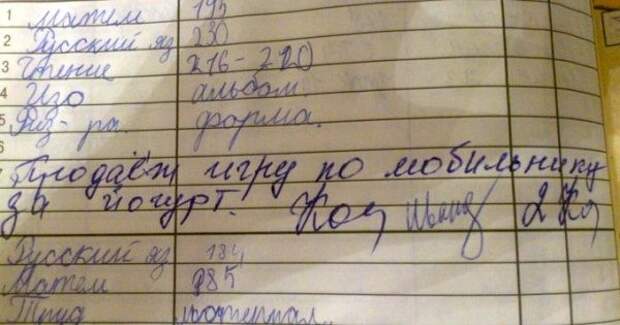 1 Матем 195
2 Русский яз 230
3 Чтение 216-220
4 Изо альбом
5 Физ-ра. форма.
6
Продаёж игру по мобильнику
за йогурт. 2
Русский яз 184
Матем 185
Труд материал.